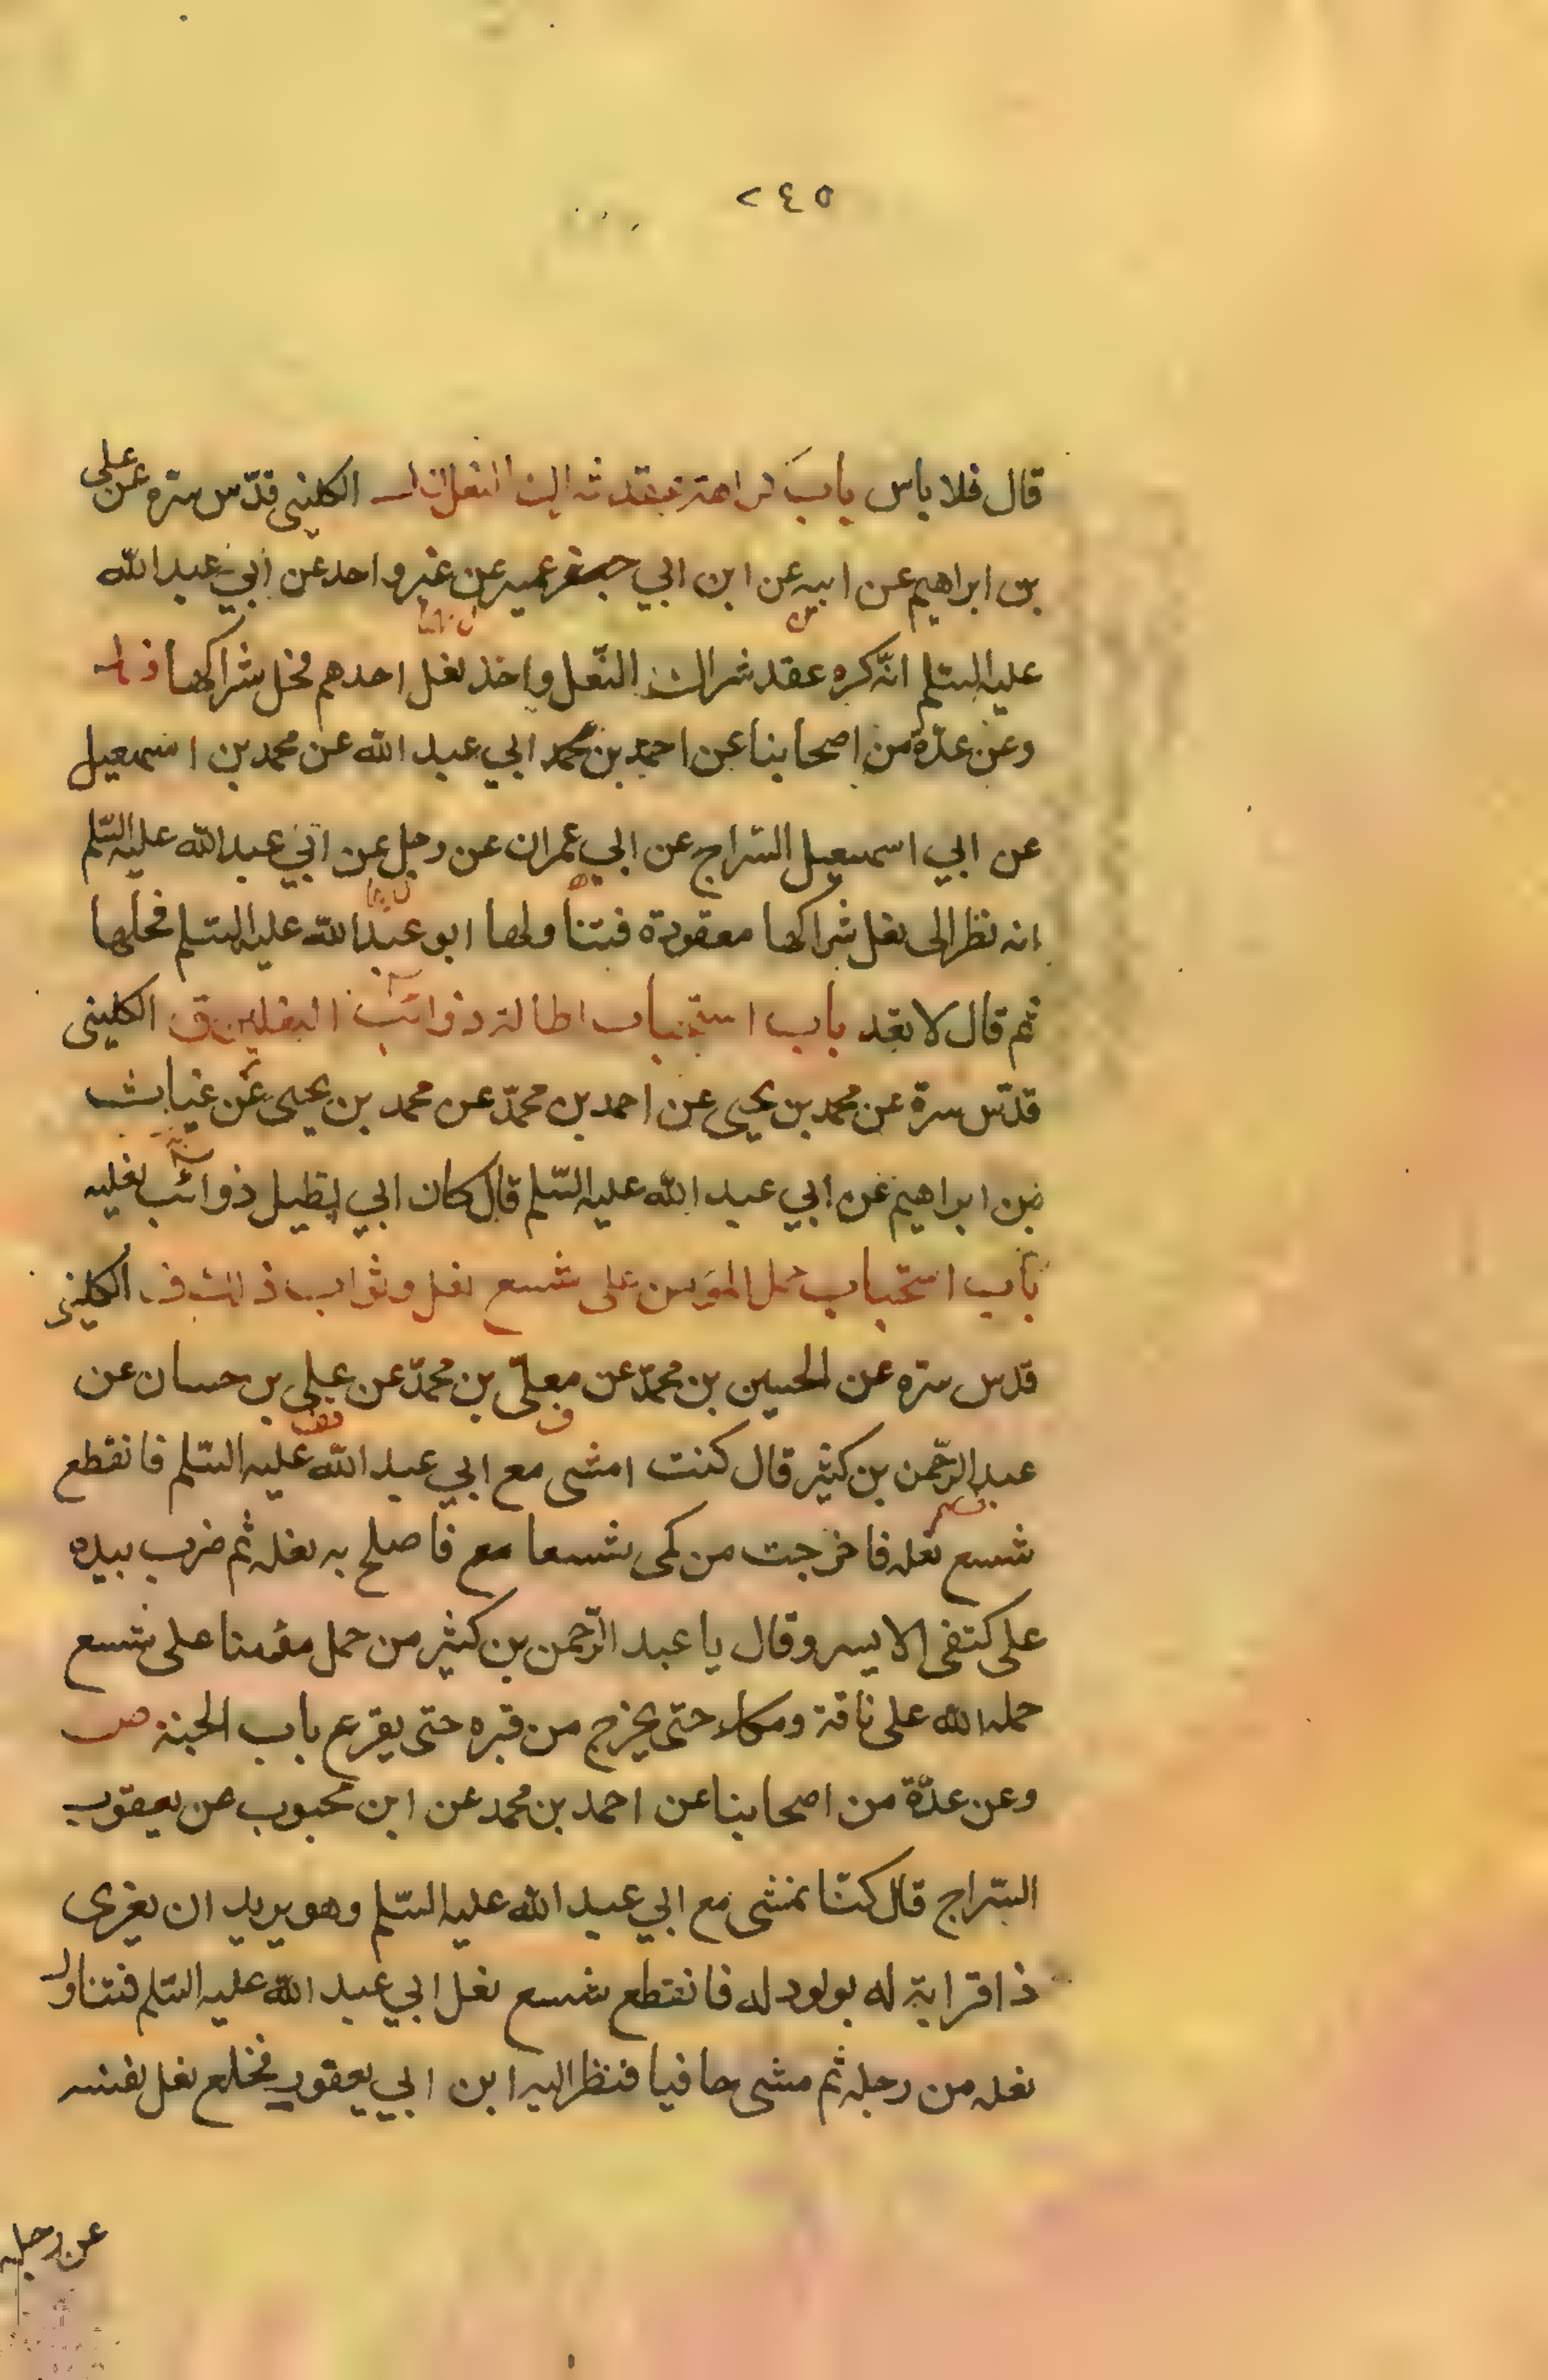 ٢٤٥
قال فلا باس باب كراهة عقد شراك النعل الكليني قدّس سره عن علي
بن ابراهيم عن ابيه عن ابن ابي عمير عن غير واحد عن ابي عبد الله
عليه السّلم انّه كره عقد شراك النّعل واخذ نعل احدهم فحل شراكها
وعن عدّة من اصحابنا عن احمد بن محمد ابي عبد الله عن محمد بن اسمعيل
عن ابي اسمعيل السّراج عن ابي عمران عن رجل عن ابي عبد الله عليه السّلم
انه نظر الى نعل شراكها معقودة فتناولها ابو عبد الله عليه السّلم فحلها
ثم قال لا تعد باب استحباب اطالة ذوائب النعلين ق الكليني
قدّس سرة عن محمد بن يحيى عن احمد بن محمّد عن محمد بن يحيى عن غياث
بن ابراهيم عن ابي عبد الله عليه السّلم قال كان ابي يطيل ذوائب نعليه
باب استحباب حمل المؤمن على شسع نعل وثواب ذلك ف الكليني
قدس سره عن الحسين بن محمّد عن معلّى بن محمّد عن علي بن حسان عن
عبد الرّحمن بن كثير قال كنت امشى مع ابي عبد الله عليه السّلم فانقطع
شسع نعله فاخرجت من كمى شسعا مع فاصلح به نعله ثم ضرب بيده
على كتفى الايسر وقال يا عبد الرّحمن بن كثير من حمل مؤمنا على شسع
حمله الله على ناقة ومكاء حتّى يخرج من قبره حتى يقرع باب الجنة ص
وعن عدّة من اصحابنا عن احمد بن محمد عن ابن محبوب عن يعقوب
السّراج قال كنّا نمشى مع ابي عبد الله عليه السّلم وهو يريد ان يعزى
ذا قرابة له بولود له فانقطع شسع نعل ابي عبد الله عليه السّلم فتناول
نعله من رجله ثم مشى حافيا فنظر اليه ابن ابي يعقور فخلع نعل نفسه
عن رجله